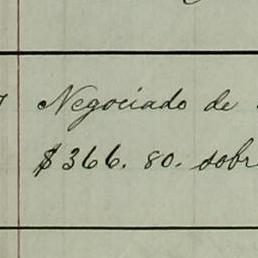 Negociado de
$366. 80. sobr